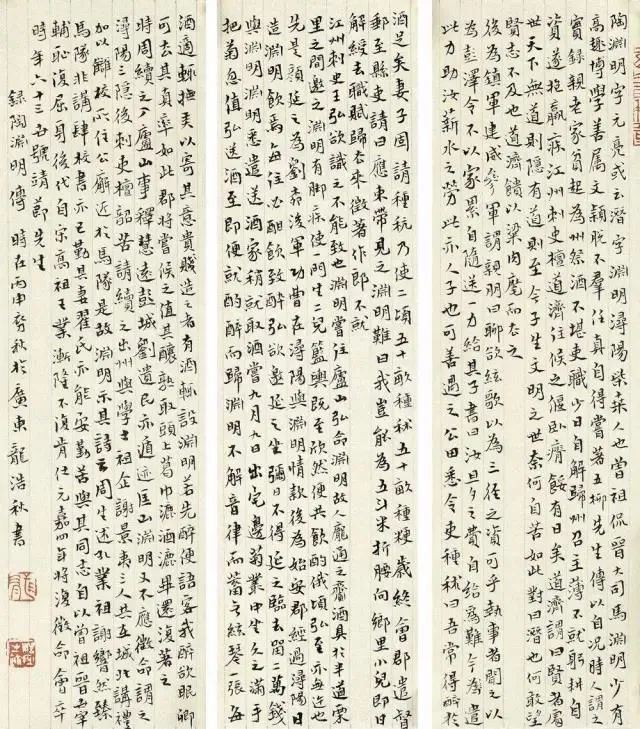 陶淵明字元亮潯陽柴桑人也曾祖侃晉大司馬淵明少有
高趣博學善屬文穎脫不羣任真自得嘗著五柳先生傳以自況時人謂之
實録親老家貧起為州祭酒不堪吏職少日自解歸州召主薄不就躬耕自
資遂抱羸疾江州刺史檀道濟往候之偃臥瘠餒有日矣道濟謂曰賢者處
世天下無道則隱有道則至今子生文明之世奈何自苦如此對曰潛也何敢望
賢志不及也道濟饋以粱肉麾而去之
後為鎮軍建威參軍謂親朋曰聊欲絃歌以為三徑之資可乎執事者聞之以
為彭澤令不以家累自隨送一力給其子書曰汝旦夕之費自給為難今為遣
此力助汝薪水之勞此亦人子也可善遇之公田悉令吏種秫曰吾常得醉於
酒足矣妻子固請種秔乃使二頃五十畝種秫五十畝種粳歲終會郡遣督
郵至縣吏請曰應束帶見之淵明歎曰我豈能為五斗米折腰向鄉里小兒即日
解綬去職賦歸去來徵著作郎不就
江州刺史王弘欲識之不能致也淵明嘗往廬山弘命淵明故人龐通之齎酒具於半道栗
里之間邀之淵明有腳疾使一門生二兒籃輿既至欣然便共飲酌俄頃弘至亦無迕也
先是顏延之為劉柳後軍功曹在潯陽與淵明情款後為始安郡經過潯陽日
造淵明飲焉每往必酣飲致醉弘欲邀延之坐彌日不得延之臨去留二萬錢
與淵明淵明悉遣送酒家稍就取酒嘗九月九日出宅邊菊叢中坐久之滿手
把菊忽值弘送酒至即便就酌醉而歸淵明不解音律而蓄無絃琴一張每
酒適輒撫弄以寄其意貴賤造之者有酒輒設淵明若先醉便語客我醉欲眠卿
可去其真率如此郡將嘗候之值其釀熟取頭上葛巾漉酒漉畢還復著之
時周續之入廬山事釋慧遠彭城劉遺民亦遁迹匡山淵明又不應徵命謂之
潯陽三隱後刺史檀韶苦請續之出州與學士祖企謝景夷三人共在城北講禮
加以讎校所住公廨近於馬隊是故淵明示其詩云周生述孔業祖謝響然臻
馬隊非講肆校書亦已勤其妻翟氏亦能安勤苦與其同志自以曾祖晉世宰
輔恥復屈身後代自宋高祖王業漸隆不復肯仕元嘉四年將復徵命會卒
時年六十三世號靖節先生
録陶淵明傳 時在丙申秋於廣東龍浩秋書